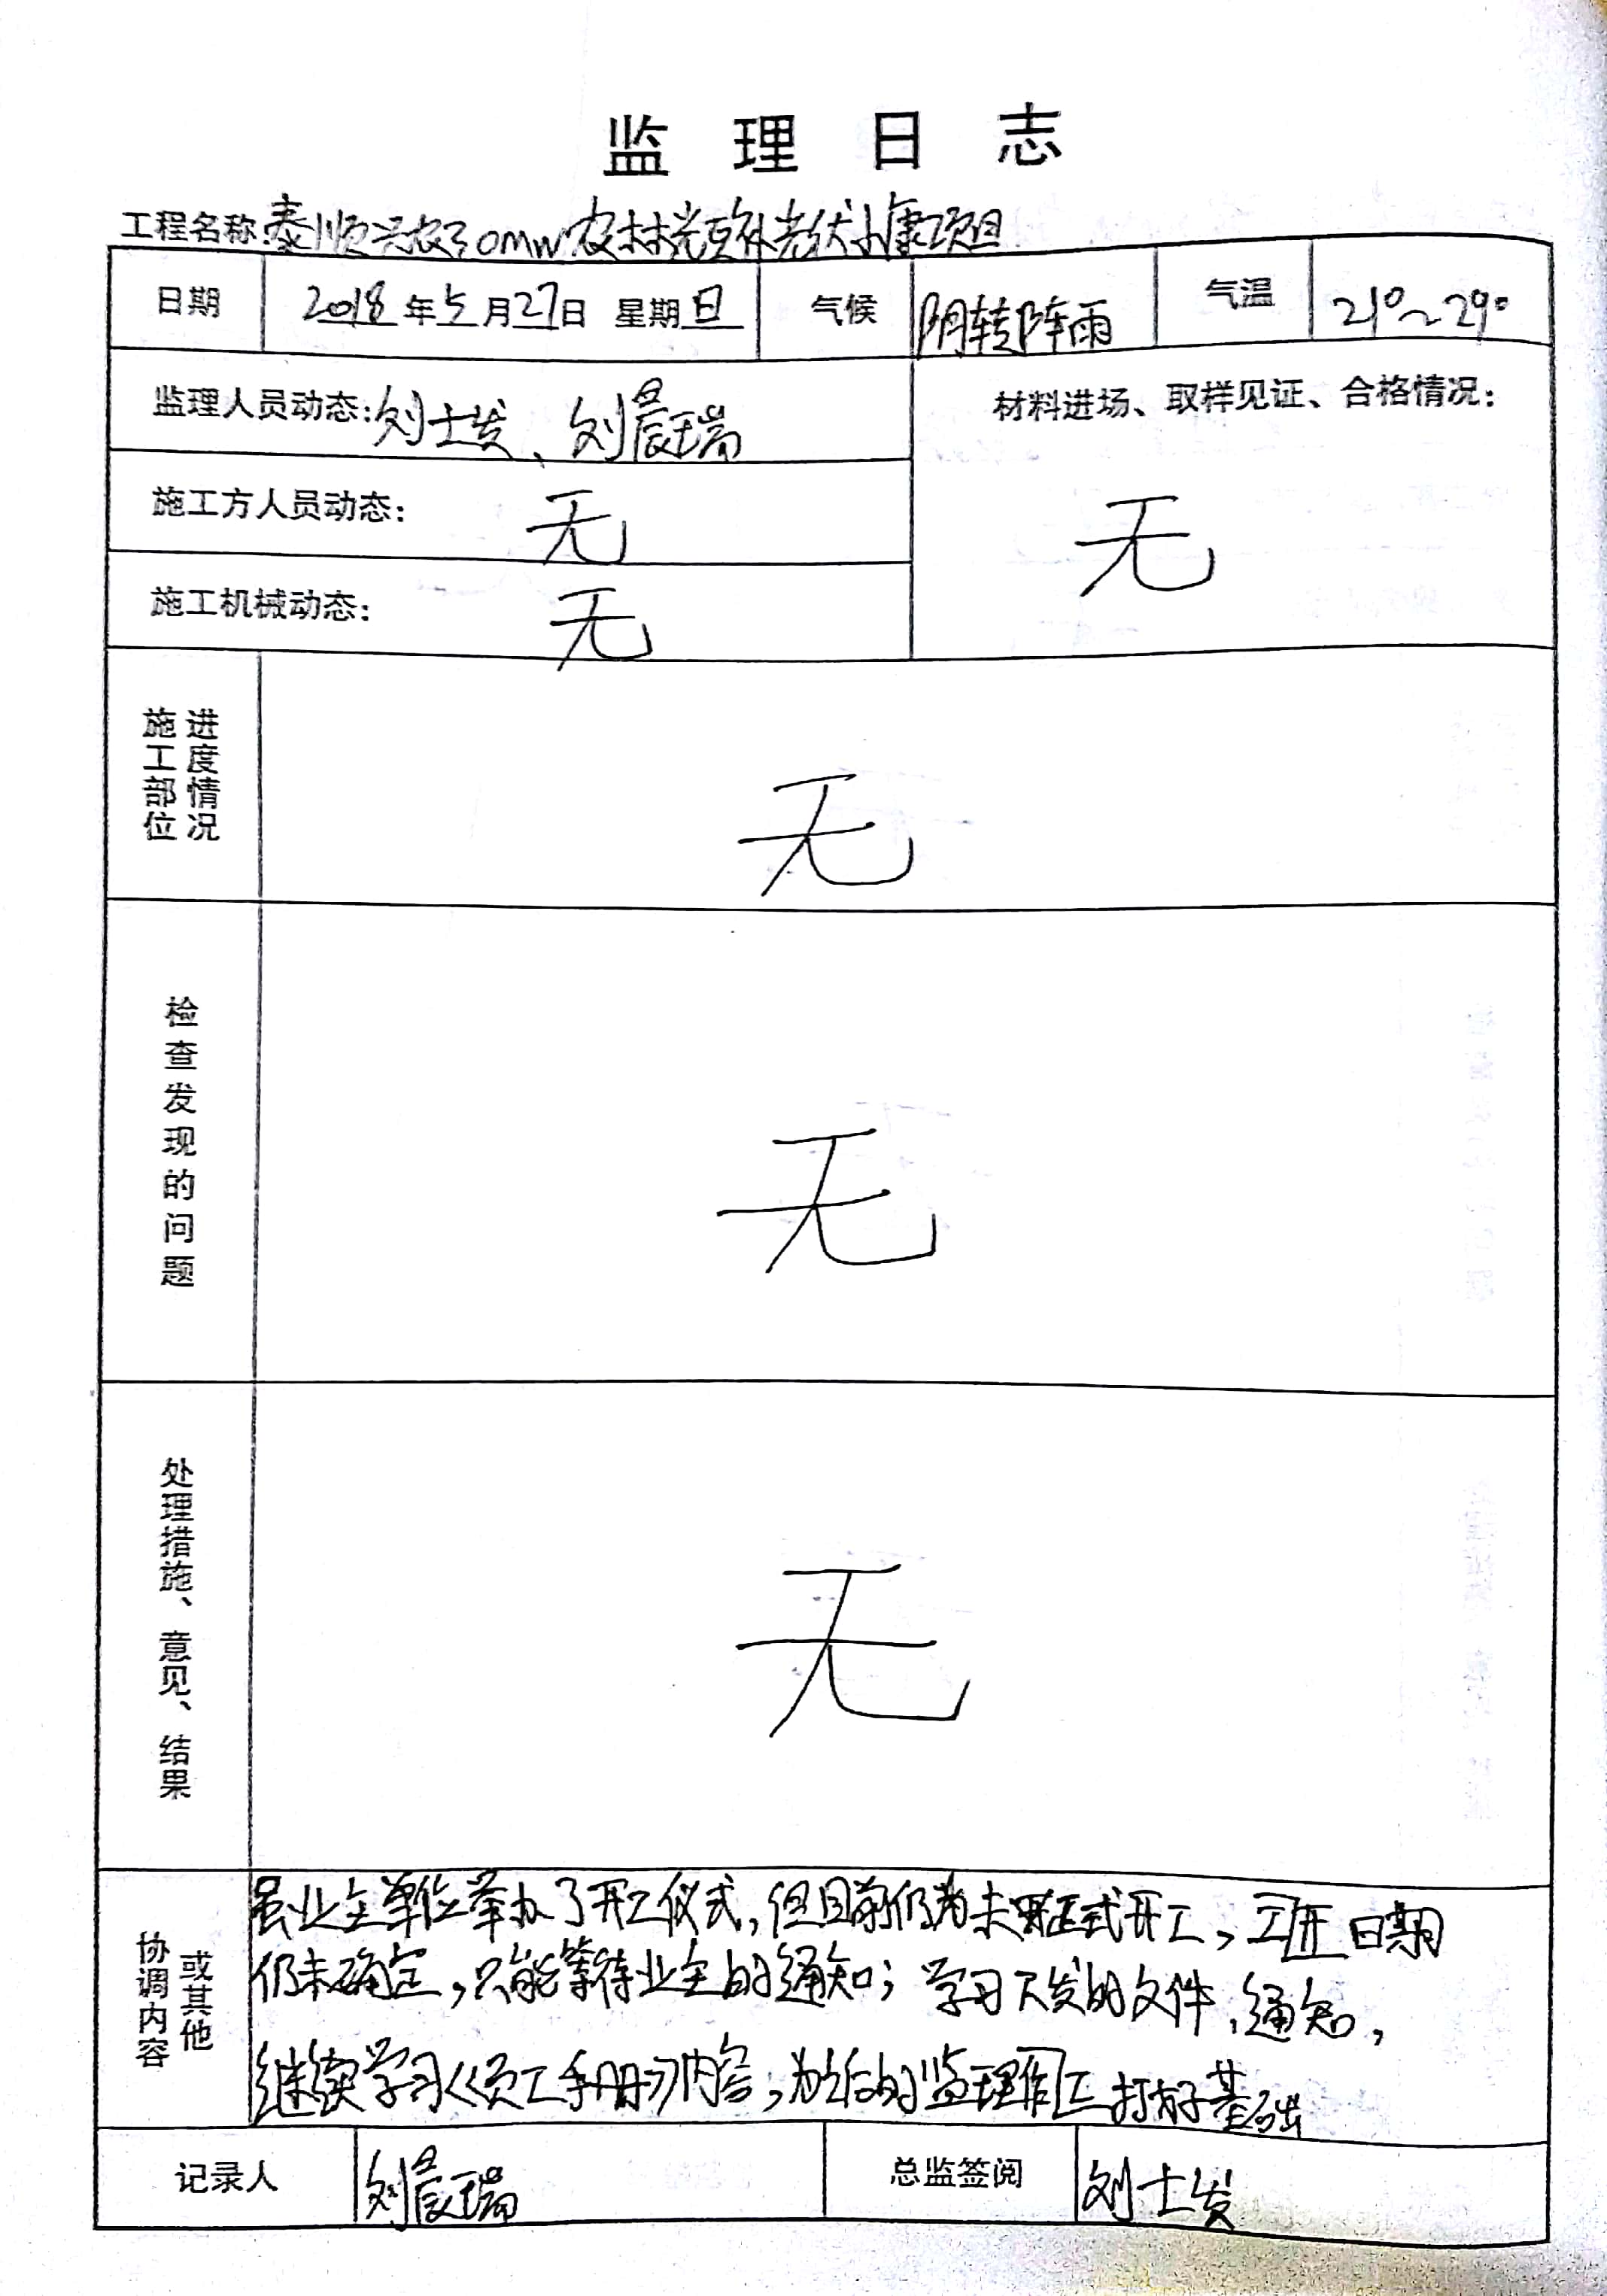 监理日志
工程名称:泰顺兴农30MW农林光互补光伏小康项目
日期 2018年5月27日 星期日 气候 阴转阵雨 气温 21°~29°
监理人员动态:刘士发、刘晨瑞 材料进场、取样见证、合格情况:
施工方人员动态: 无 无
施工机械动态: 无
施工部位 进度情况 无
检查发现的问题 无
处理措施、意见、结果 无
协调内容 或其他
虽业主单位举办了开工仪式,但目前仍为未正式开工,开工日期
仍未确定,只能等待业主的通知;学习下发的文件、通知,
继续学习《员工手册》内容,为以后的监理工作打好基础
记录人 刘晨瑞 总监签阅 刘士发